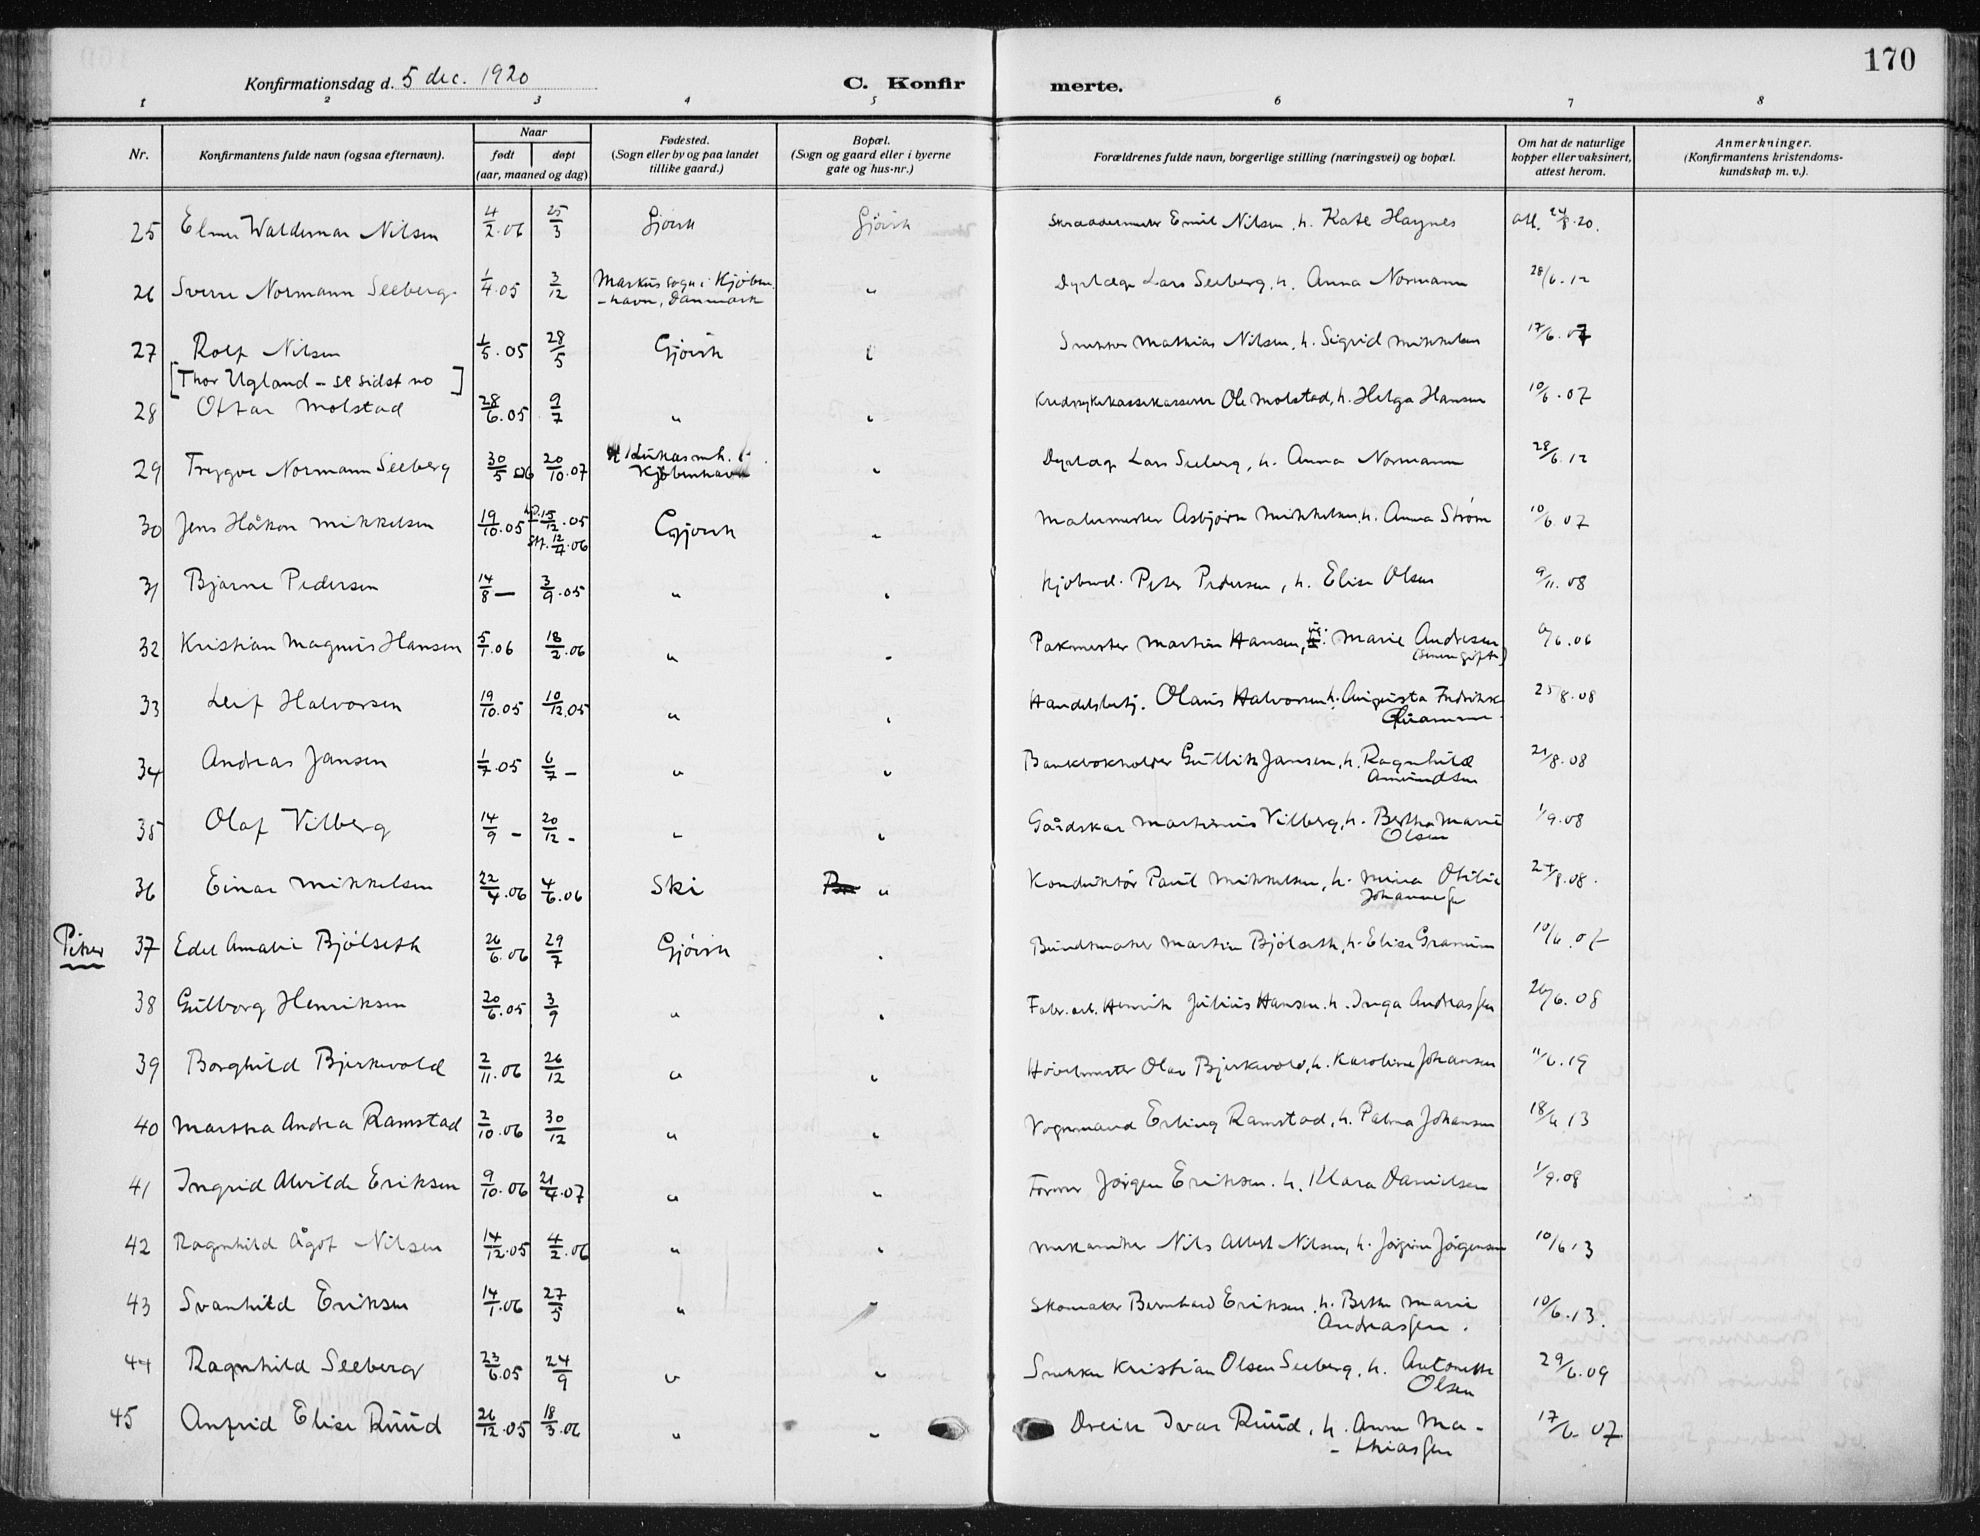 170
Konfirmationsdag d. 5 dec. 1920
C. Konfirmerte.
1 2 3 4 5 6 7 8
Nr.
Konfirmantens fulde navn (ogsaa efternavn).
Naar
født
døpt
(aar, maaned og dag)
Fødested.
(Sogn eller by og paa landet
tillike gaard.)
Bopæl.
(Sogn og gaard eller i byerne
gate og hus-nr.)
Forældrenes fulde navn, borgerlige stilling (næringsvei) og bopæl.
Om hat de naturlige
kopper eller vaksinert,
attest herom.
Anmerkninger.
(Konfirmantens kristendoms-
kundskap m. v.).
25 Elmer Waldemar Nilsen 4/2.06 25/3 Gjøvik Gjøvik Emil Nilsen, h. Kate Haynes att. 20.
26 Sverre Normann Seeberg 1/4.05 3/12 Markus sogn i Kjøben- Dyrlæge Lars Seeberg, h. Anna Normann 28/6.12
-havn, Danmark "
27 Rolf Nilsen 1/5.05 28/5 Gjøvik " Snekker Mathias Nilsen, h. Sigrid Mikkelsen 17/6.07
[Thor Ugland - se sidst no]
28 Ottar Molstad 28/6.05 9/7 " " Ole Molstad, h. Helga Hansen 10/6.07
29 Trygve Normann Seeberg 30/5 06 20/10.07 Lukas mh. i " Dyrlæge Lars Seeberg, h. Anna Normann 28/6.12
Kjøbenhavn
30 Jens Håkon Mikkelsen 19/10.05 hd. 15/12.05 Gjøvik " Malermester Asbjørn Mikkelsen, h. Anna Strøm 10/6.07
stf. 12/4.06
31 Bjarne Pedersen 14/8 — 3/9.05 " " Kjøbmd. Peter Pedersen, h. Elise Olsen 9/11.08
32 Kristian Magnus Hansen 5/1.06 18/2.06 " " Pakmester Martin Hansen, Marie Andresen 6.06
33 Leif Halvorsen 19/10.05 10/12.05 " " Handelsbetj. Olaus Halvorsen, h. Augusta Fredrikke 25/8.08
34 Andreas Jansen 1/7.05 6/7 - " " Bankbokholder Gullik Jansen, h. Ragnhild 21/8.08
Amundsen
35 Olaf Vilberg 14/9 - 20/12 - " " Gårdskar Martinius Vilberg, h. Bertha Marie 1/9.08
Olsen
36 Einar Mikkelsen 22/4.06 4/6.06 Ski " Konduktør Paul Mikkelsen, h. Mina Otilie 24/8.08.
Piker 37 Edel Amalie Bjølseth 26/6.06 29/7 Gjøvik " Buntmaker Martin Bjølseth, h. Elise Granum 10/6.07
38 Gulborg Henriksen 20/6.05 3/9 " " Fabr.arb. Henrik Julius Hansen h. Inga Andreassen 26/6.08
39 Borghild Bjerkvold 2/11.06 26/12 " " Høvelmester Olav Bjerkvold, h. Karoline Johansen 11/6.19
40 Martha Andrea Ramstad 2/10.06 30/12 " " Vognmand Erling Ramstad, h. Palma Johansen 18/6 13
41 Ingrid Alvilde Eriksen 9/10.06 21/4.07 " " Former Jørgen Eriksen. h. Klara Danielsen 1/9.08
42 Ragnhild Ågot Nilsen 14/12.05 4/2.06 " " Mekaniker Nils Albert Nilsen, h. Jørgine Jørgensen 10/6 13
43 Svanhild Eriksen 14/1.06 27/5 " " Skomaker Bernhard Eriksen, h. Berthe Marie 10/6.13.
Andreassen.
44 Ragnhild Seeberg 23/6.05 24/9 " " Snekker Kristian Olsen Seeberg, h. Antonette 29/6.09
Olsen
45 Anfrid Elise Ruud 26/12.05 18/3.06 " " Dreier Ivar Ruud, h. Anna Ma- 17/6 07
-thiassen